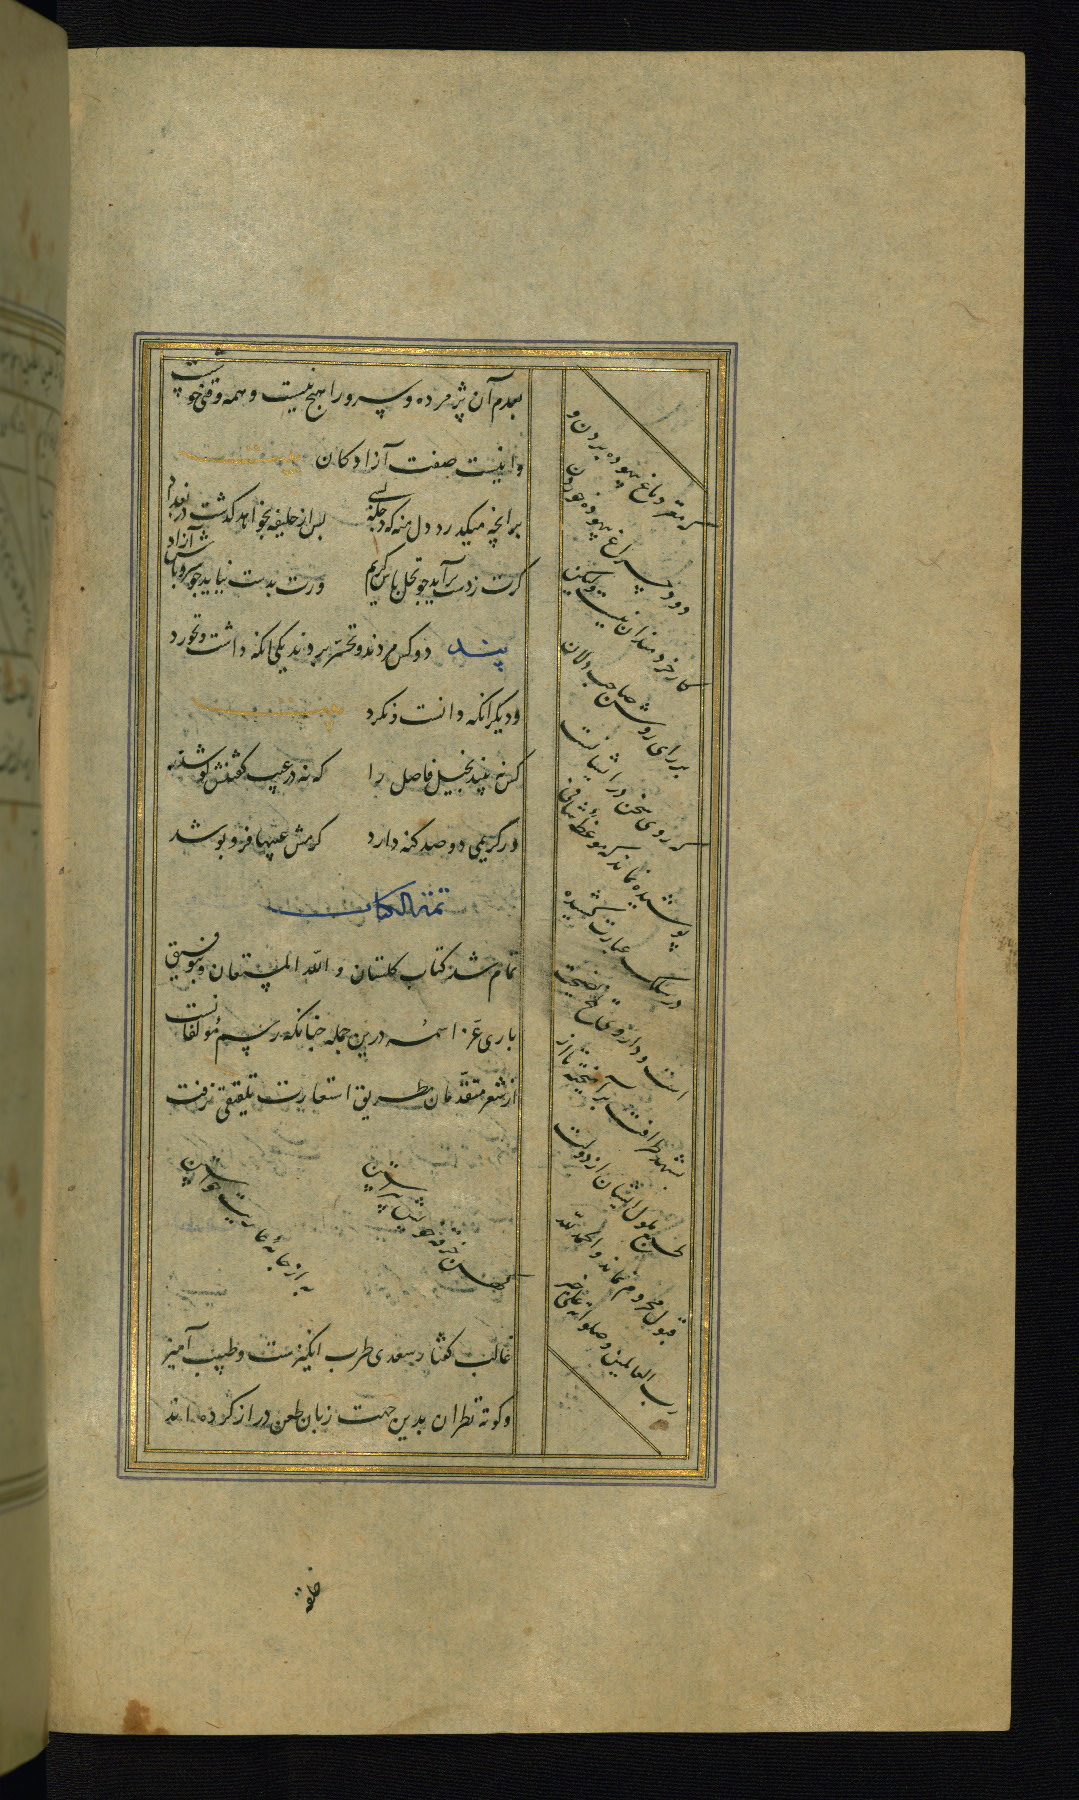 بعدم آن پژمرده و سرو را هیچ نیست و همه وقتی خوشست
و اینست صفت آزادکان
بر انچه میکذرد دل منه که دجله بسی
پس از خلیفه بخواهد کذشت در بغداد
کرت ز دست برآید چو نخل باش کریم
ورت بدست نیاید چو سرو باش آزاد
پند دو کس مردند و تحسر بردند یکی انکه داشت و نخورد
و دیکر انکه دانست و نکرد
کس نبیند بخیل فاضل را
که نه در عیب کفتنش کوشد
ور کریمی دو صد کنه دارد
کرمش عیبها فرو پوشد
تمة الکتاب
تمام شد کتاب کلستان و الله المستعان و بتوفیق
باری عز اسمه درین جمله چنانکه رسم مؤلفانست
از شعر متقدمان بطریق استعارت تلفیقی نرفت
کهن خرقه خویش پیراستن
به از جامهٔ عاریت خواستن
غالب کفتار سعدی طرب انکیزست و طیب آمیز
و کوته نظران بدین جهت زبان طعن دراز کرده اند
که مغز دماغ بیهوده بردن و
دود چراغ بیهوده خوردن
کار خردمندان نیست ولیکن
بر رای روشن صاحب دلان
که روی سخن در ایشانست
پوشیده نماند که موعظهٔ شافی
در سلک عبارت کشیده
است و داروی تلخ نصیحت
بشهد ظرافت برآمیخته تا از
طبع ملول ایشان از دولت
قبول محروم نماند و الحمد لله
رب العالمین و صلواته علی خیر
خلقه